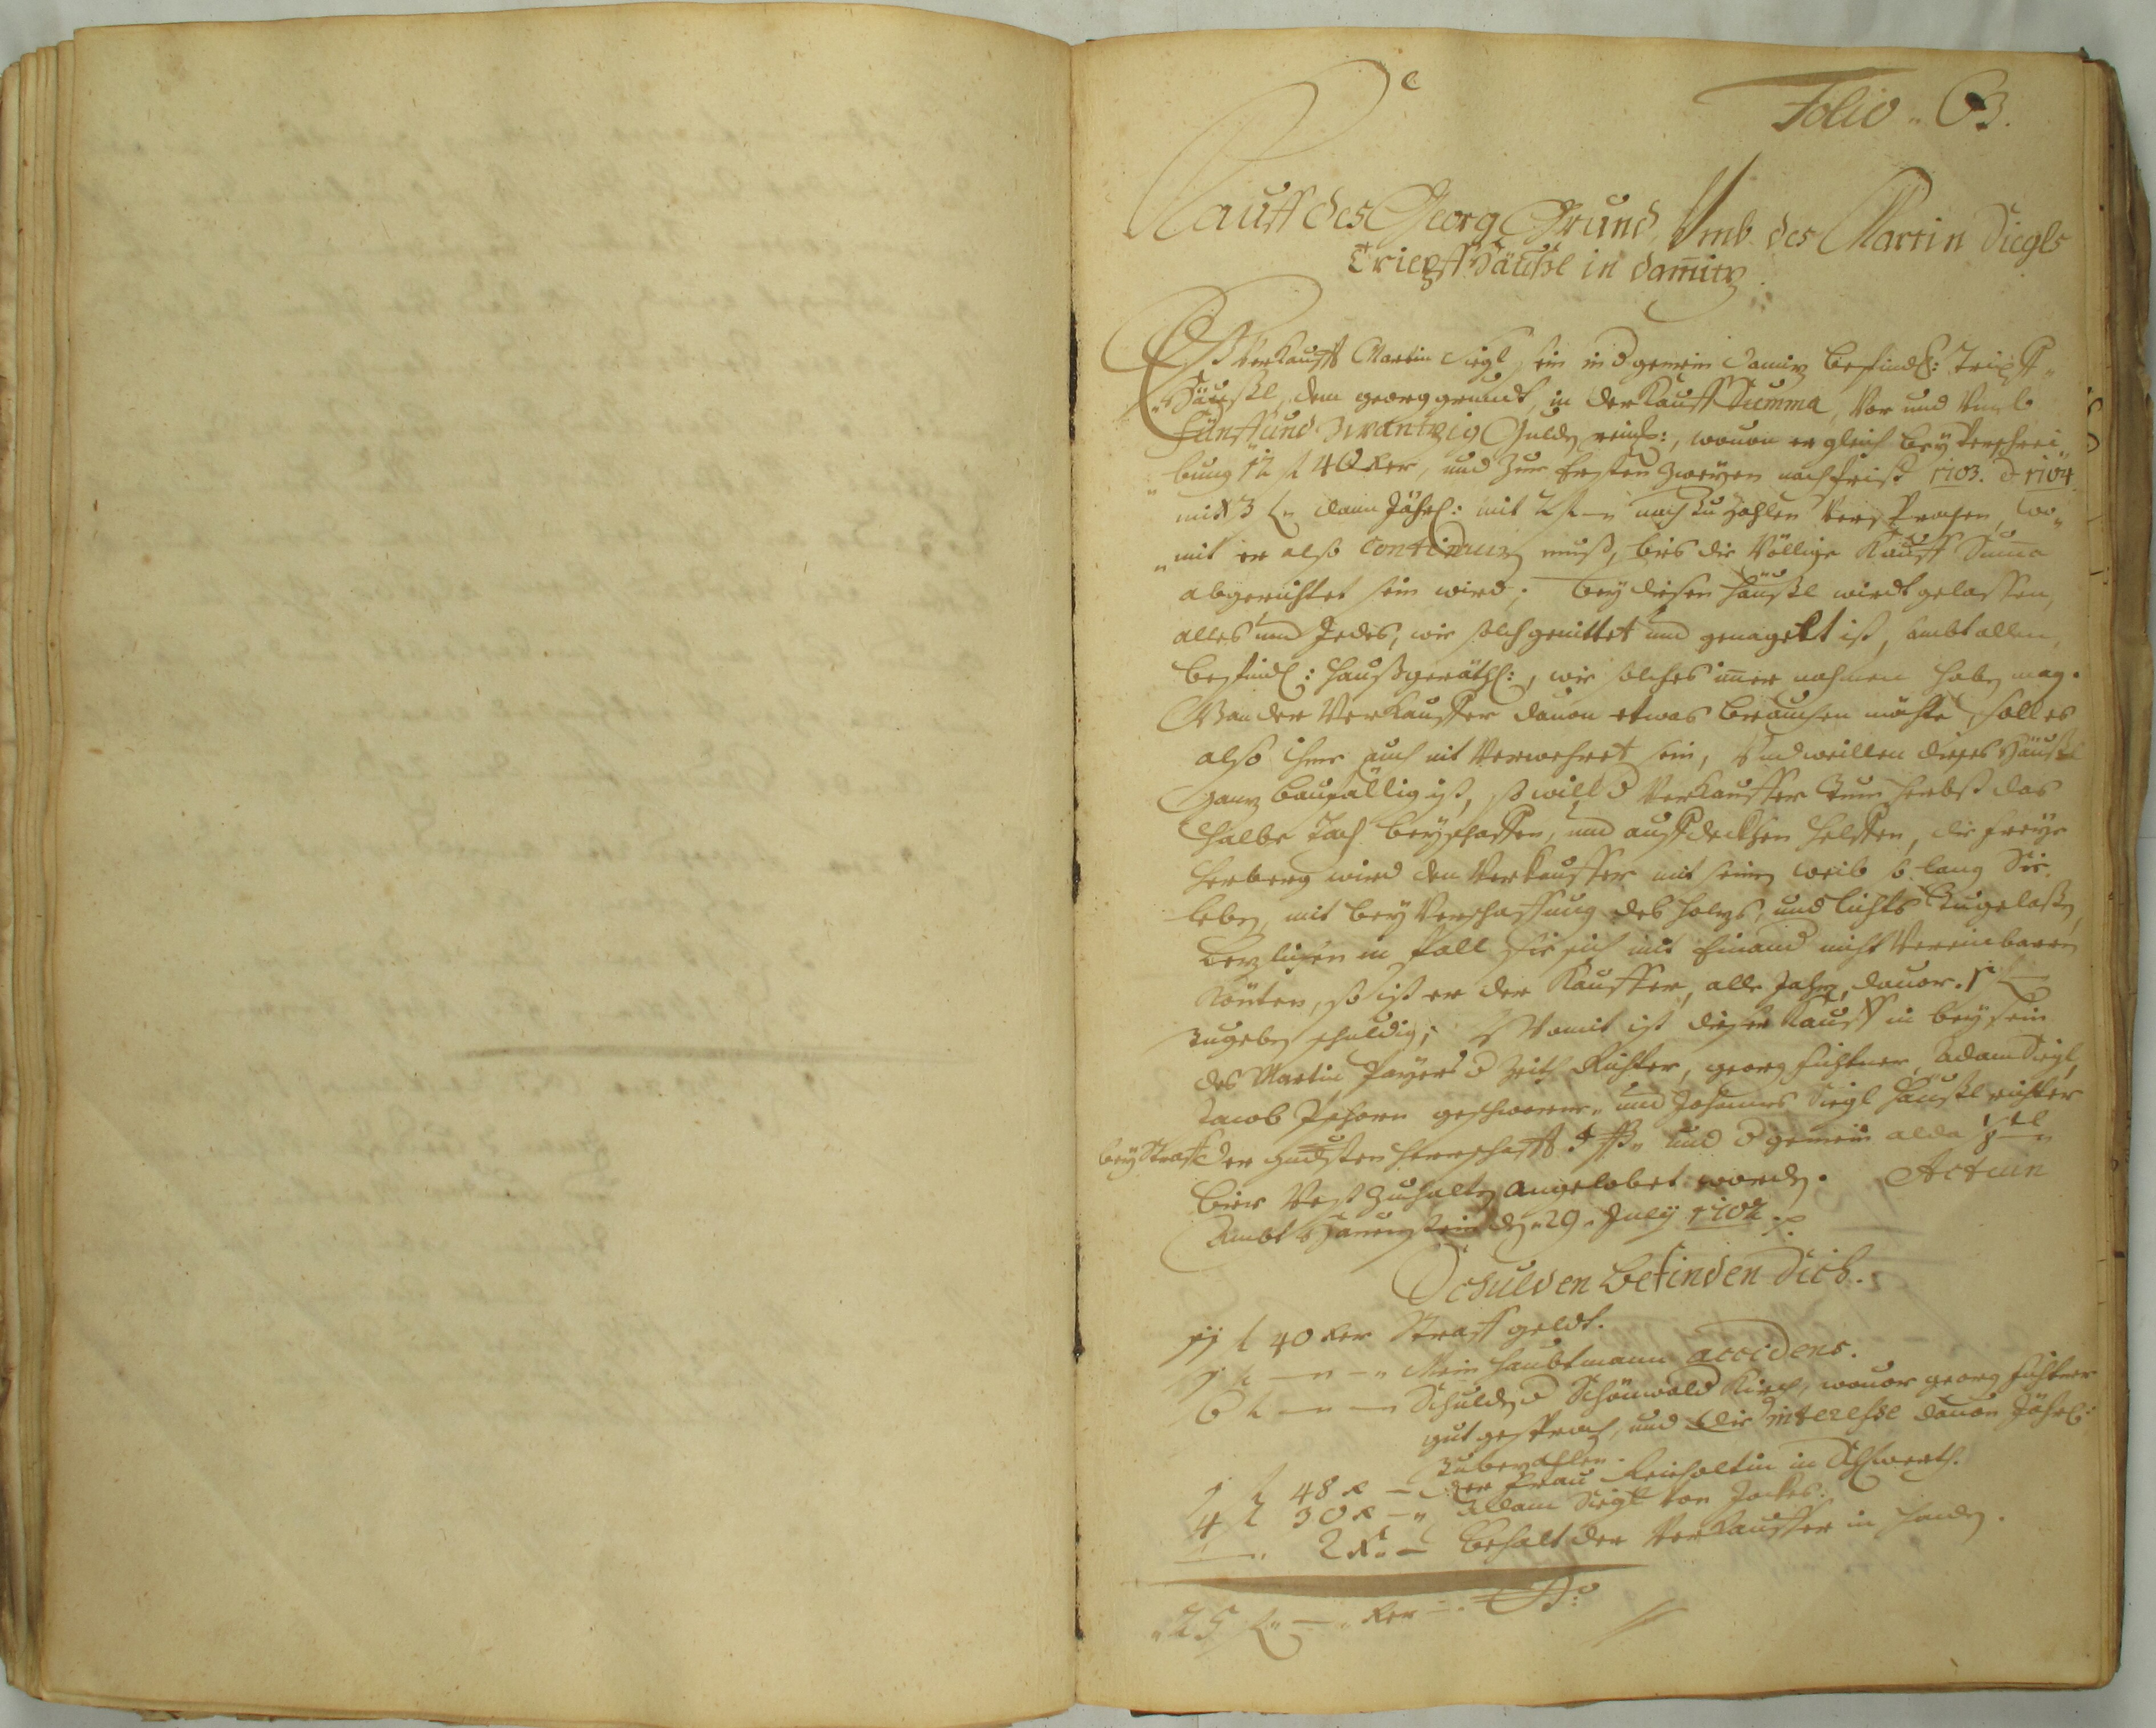 Folio 63.
Kauff des Georg Grund, Umb des Martin Siegls
Triepff Häußl in damitz
Eß Verkaufft Martin Siegl sein in d gemein Damitz befindl: Tripff
Häußl, dem georg grundt, in der Kauff Summa, Vor und Umb
Fünff und Zwantzig Gulden reinl:, wouon er gleich bey verschrei
bung 12 f 40 Xer, und zur Ersten Zweyen nachfrist 1703. & 1704
mit 3 f dann Jährl: mit 2 f nach Zu Zahlen Versprochen, wo
mit er also Continuiren muß, bis die Völlige Kauff Suma
abgerichtet sein wird; Bey diesen Häußl wirdt gelassen,
alles und Jedes, wie solch geniittet und genagelt ist, sambt allen
befindl: Haußgeräthl:, wie solches imer nahmen haben mag.
Wan der Verkauffer dauon etwas brauchen möchte, soll es
also ihme auch nit Verwehret sein, Und weillen dieses Häußl
Gantz baufällig ist, so will d Verkauffer Zum Herbst das
halbe Tach beyschaffen, und auffdeckhen helffen, die freye
Herberg wird den Verkauffer mit seinen Weib so lang Sie
leben, mit bey Verschaffung des holtzs, und lichts Zugelassen,
in fall sie sich mit Einand nicht Vereinbaren
Könten, so ist er der Kauffer, alle Jahr, dauor 1 f
Zugeben schuldig; Womit ist dieser Kauff in beysein
des Martin Payers d Zeit Richter, georg fichtner, Adam Siegl,
Jacob geschworne, und Johannes Siegl Häußl richter
bey Straff Der gndsten Herrschafft und d gemein alda
bier Vest Zuhalten angelobet worden. Actum
Ambt Hauenstein den 29 July 1702.
Schulden befinden Sich.
11 f 40 Xer Straff geldt.
1 f — — Mein Haubtmann accidens.
6 f — — Schulden d Schönwald Kirch, wouor georg fichtner
gut gesproch, und die interesse dauon Jährl:
Zubezahlen.
1 f 48 X — der Frau Reicholtin in
4 f 30 X — Adam Siegl von
— 2 X — Behalt der Verkauffer in Handen.
25 f — Xer —